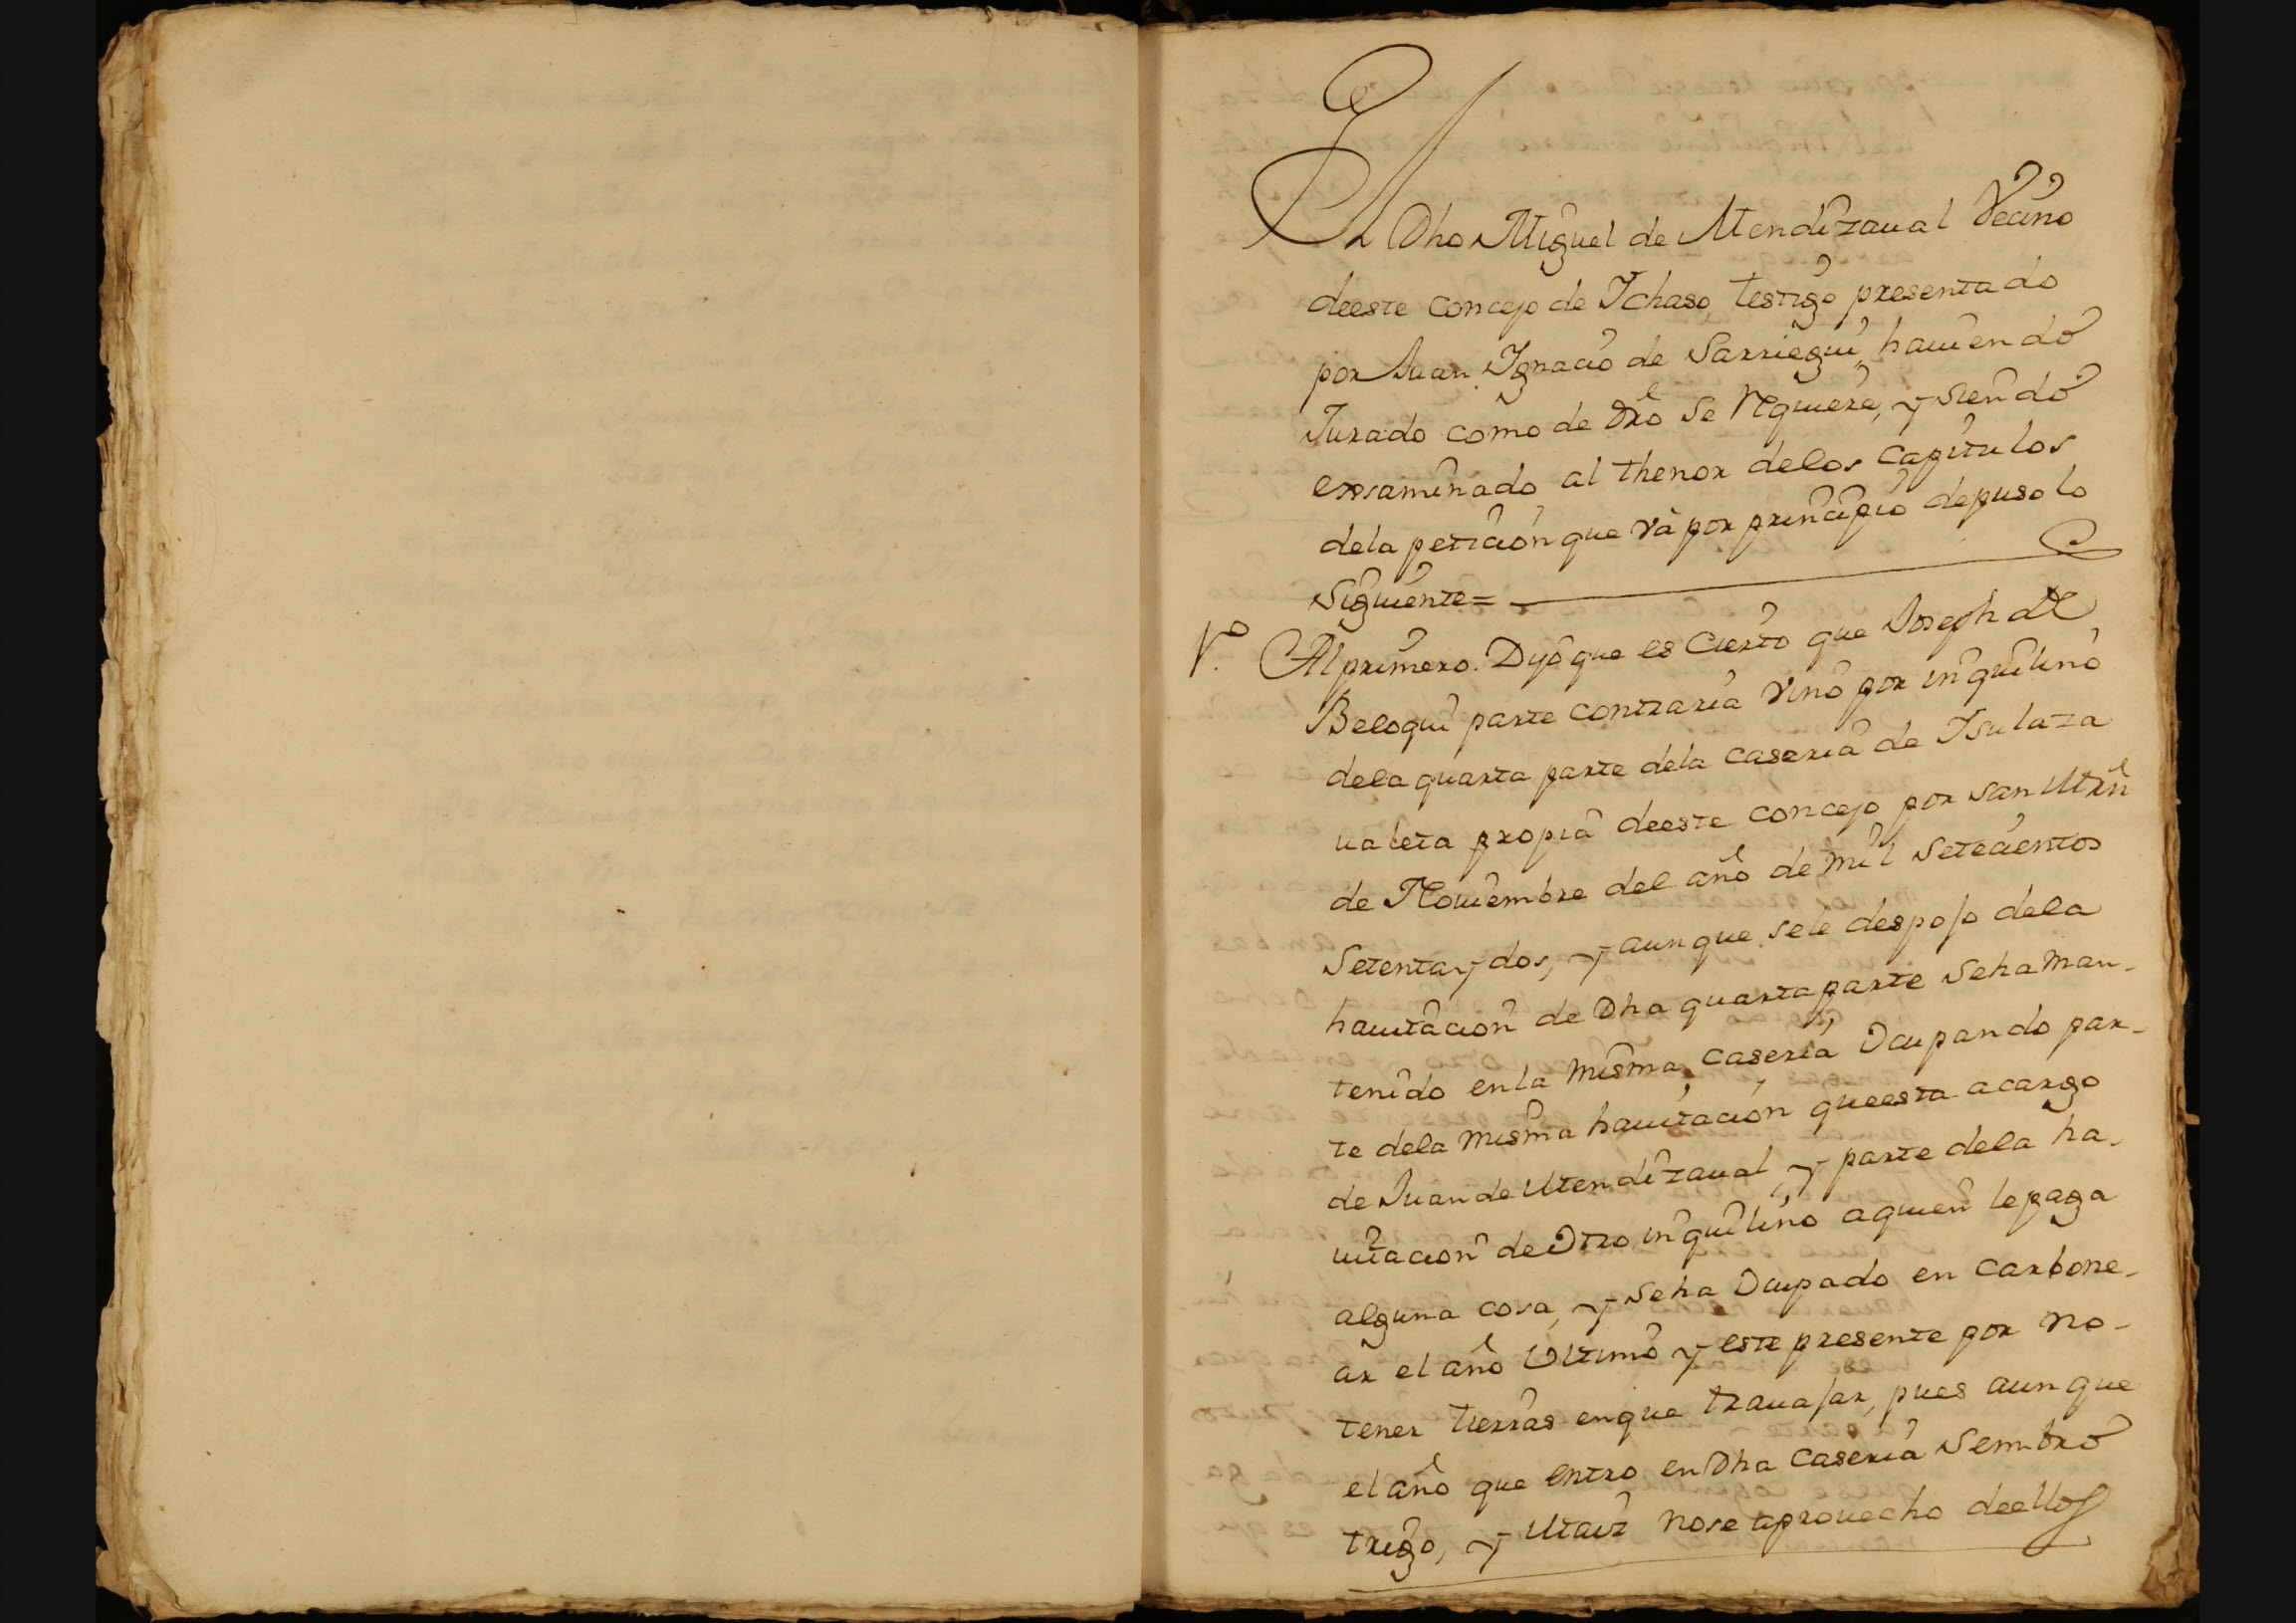 El Dho Miguel de Mendizaual Vecino
deeste concejo de Ichaso, testigo presentado
por Juan Ignacio de Sarriegui, hauiendo
Jurado como de Dro se requiere, y siendo
exsaminado al thenor delos Capitulos
dela peticion que và por principio depuso lo
Siguiente=
1º Al primero. Dijo que es Cierto que Joseph de
Beloqui parte contraria vino por inquilino
dela quarta parte dela caseria de Isulaza
ualeta propia deeste concejo por san Mrñ
de Nouiembre del año de mil Setecientos
Setenta y dos, y aunque sele despojo dela
hauitacion de Dha quarta parte Seha Man-
tenido enla misma caseria Ocupando par-
te dela misma hauitacion queesta acargo
de Juan de Mendizaual, y parte dela ha-
uitacion de Otro inquilino aquien lepaga
alguna cosa, y Seha Ocupado en Carbone-
ar el año Ultimo y este presente por no-
tener tierras enque trauajar, pues aunque
el año que entro en Dha Caseria Sembró
trigo, y Maiz nose aprouecho deellos